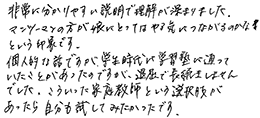 非常に分かりやすい説明で理解が深まりました。
マンツーマンの方が親いとってはやる気につながるのかな
という印象です。
個人的な話ですが、学生時代に学習塾に通って
いたことがあったのですが、退屈で長続きしません
でした。こういった家庭教師という選択肢が
あったら自分も試してみたかったです。